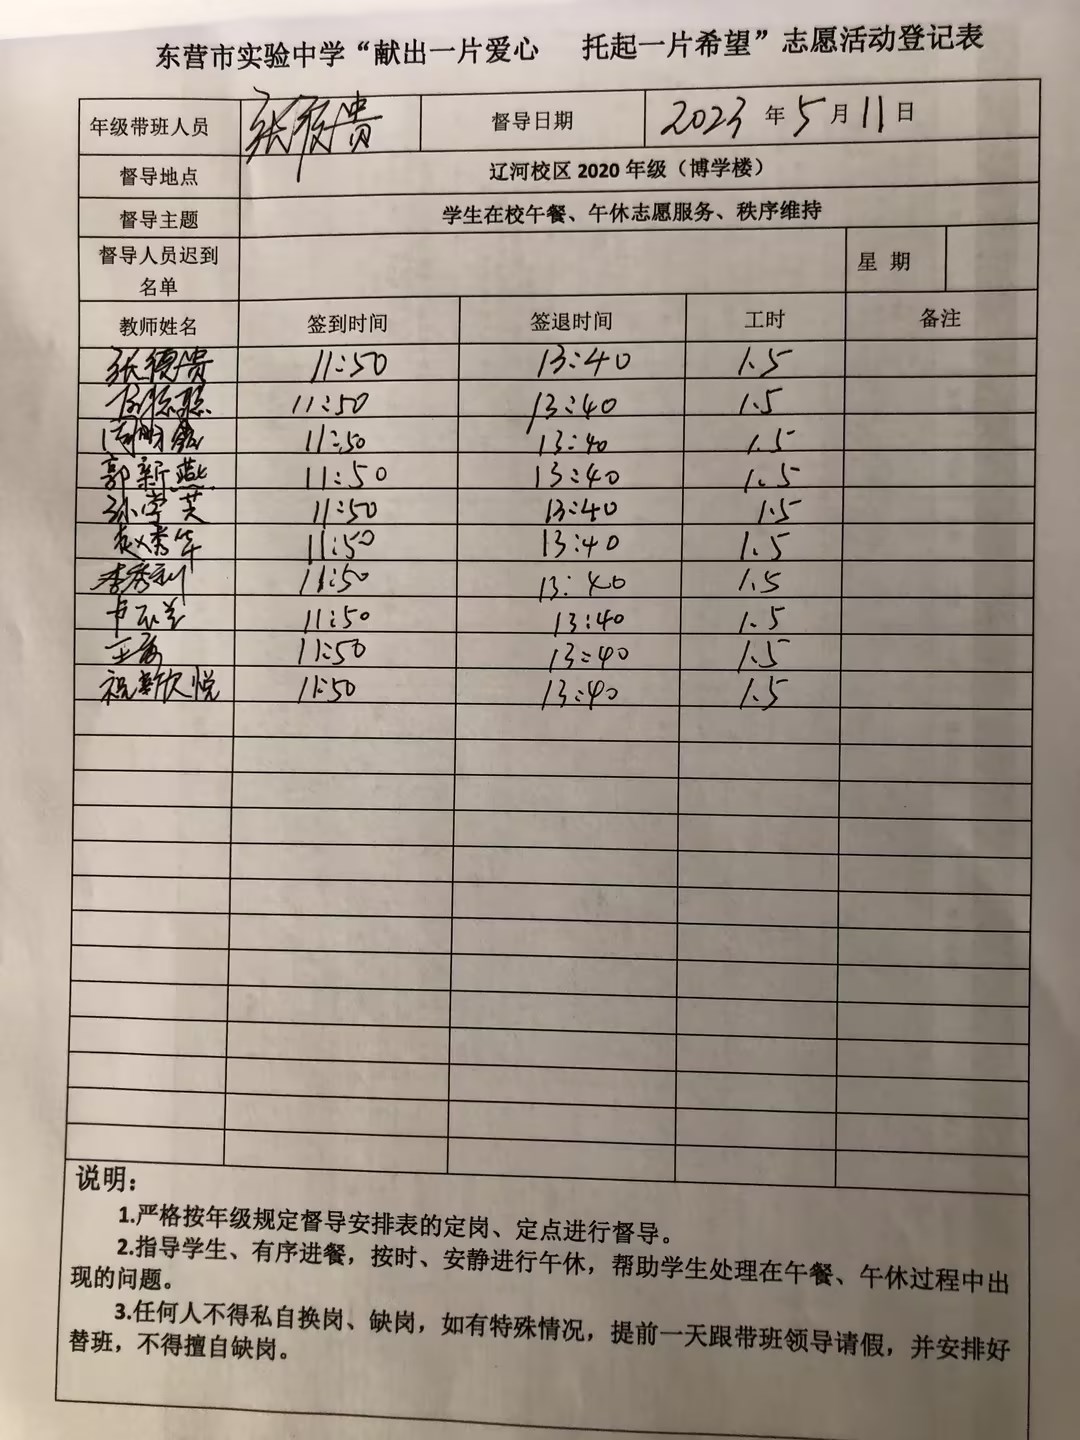 东营市实验中学“献出一片爱心 托起一片希望”志愿活动登记表
年级带班人员 张德贵 督导日期 2023年5月11日
督导地点 辽河校区2020年级（博学楼）
督导主题 学生在校午餐、午休志愿服务、秩序维持
督导人员迟到名单 星 期
教师姓名 签到时间 签退时间 工时 备注
张德贵 11:50 13:40 1.5
11:50 13:40 1.5
11:50 13:40 1.5
郭新燕 11:50 13:40 1.5
孙学英 11:50 13:40 1.5
赵秀华 11:50 13:40 1.5
李秀利 11:50 13:40 1.5
11:50 13:40 1.5
11:50 13:40 1.5
祝新欣悦 11:50 13:40 1.5
说明：
1.严格按年级规定督导安排表的定岗、定点进行督导。
2.指导学生、有序进餐，按时、安静进行午休，帮助学生处理在午餐、午休过程中出
现的问题。
3.任何人不得私自换岗、缺岗，如有特殊情况，提前一天跟带班领导请假，并安排好
替班，不得擅自缺岗。